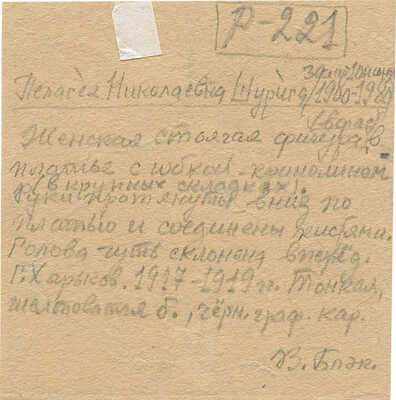 Р-221
Пелагея Николаевна Шурига /1900-1980
Женская стоячая фигура, в
платье с юбкой-кринолином
в крупных складках).
Руки протянуты вниз по
платью и соединены кистями.
Голова чуть склонена вперёд.
Г. Харьков. 1917-1919 гг. Тонкая,
желтоватая б., чёрн. граф. кар.
В. Блэк.